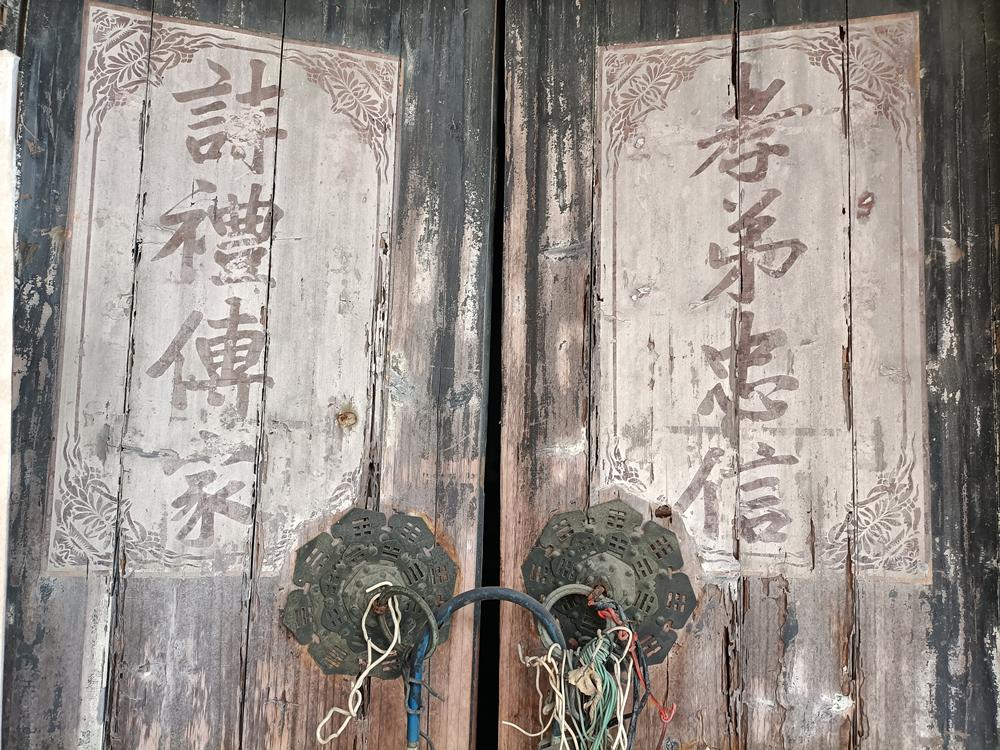 孝弟忠信
詩禮傳家